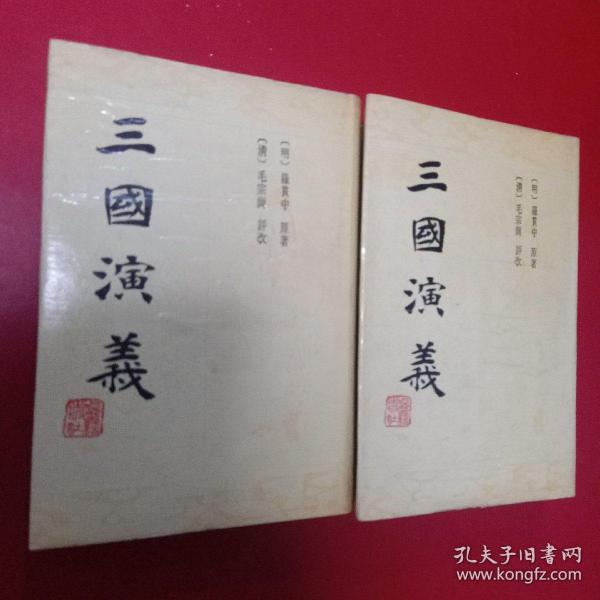 三國演義
〔明〕羅貫中 原著
〔清〕毛宗崗 評改
三國演義
〔明〕羅貫中 原著
〔清〕毛宗崗 評改
孔夫子旧书网
www.kongfz.com